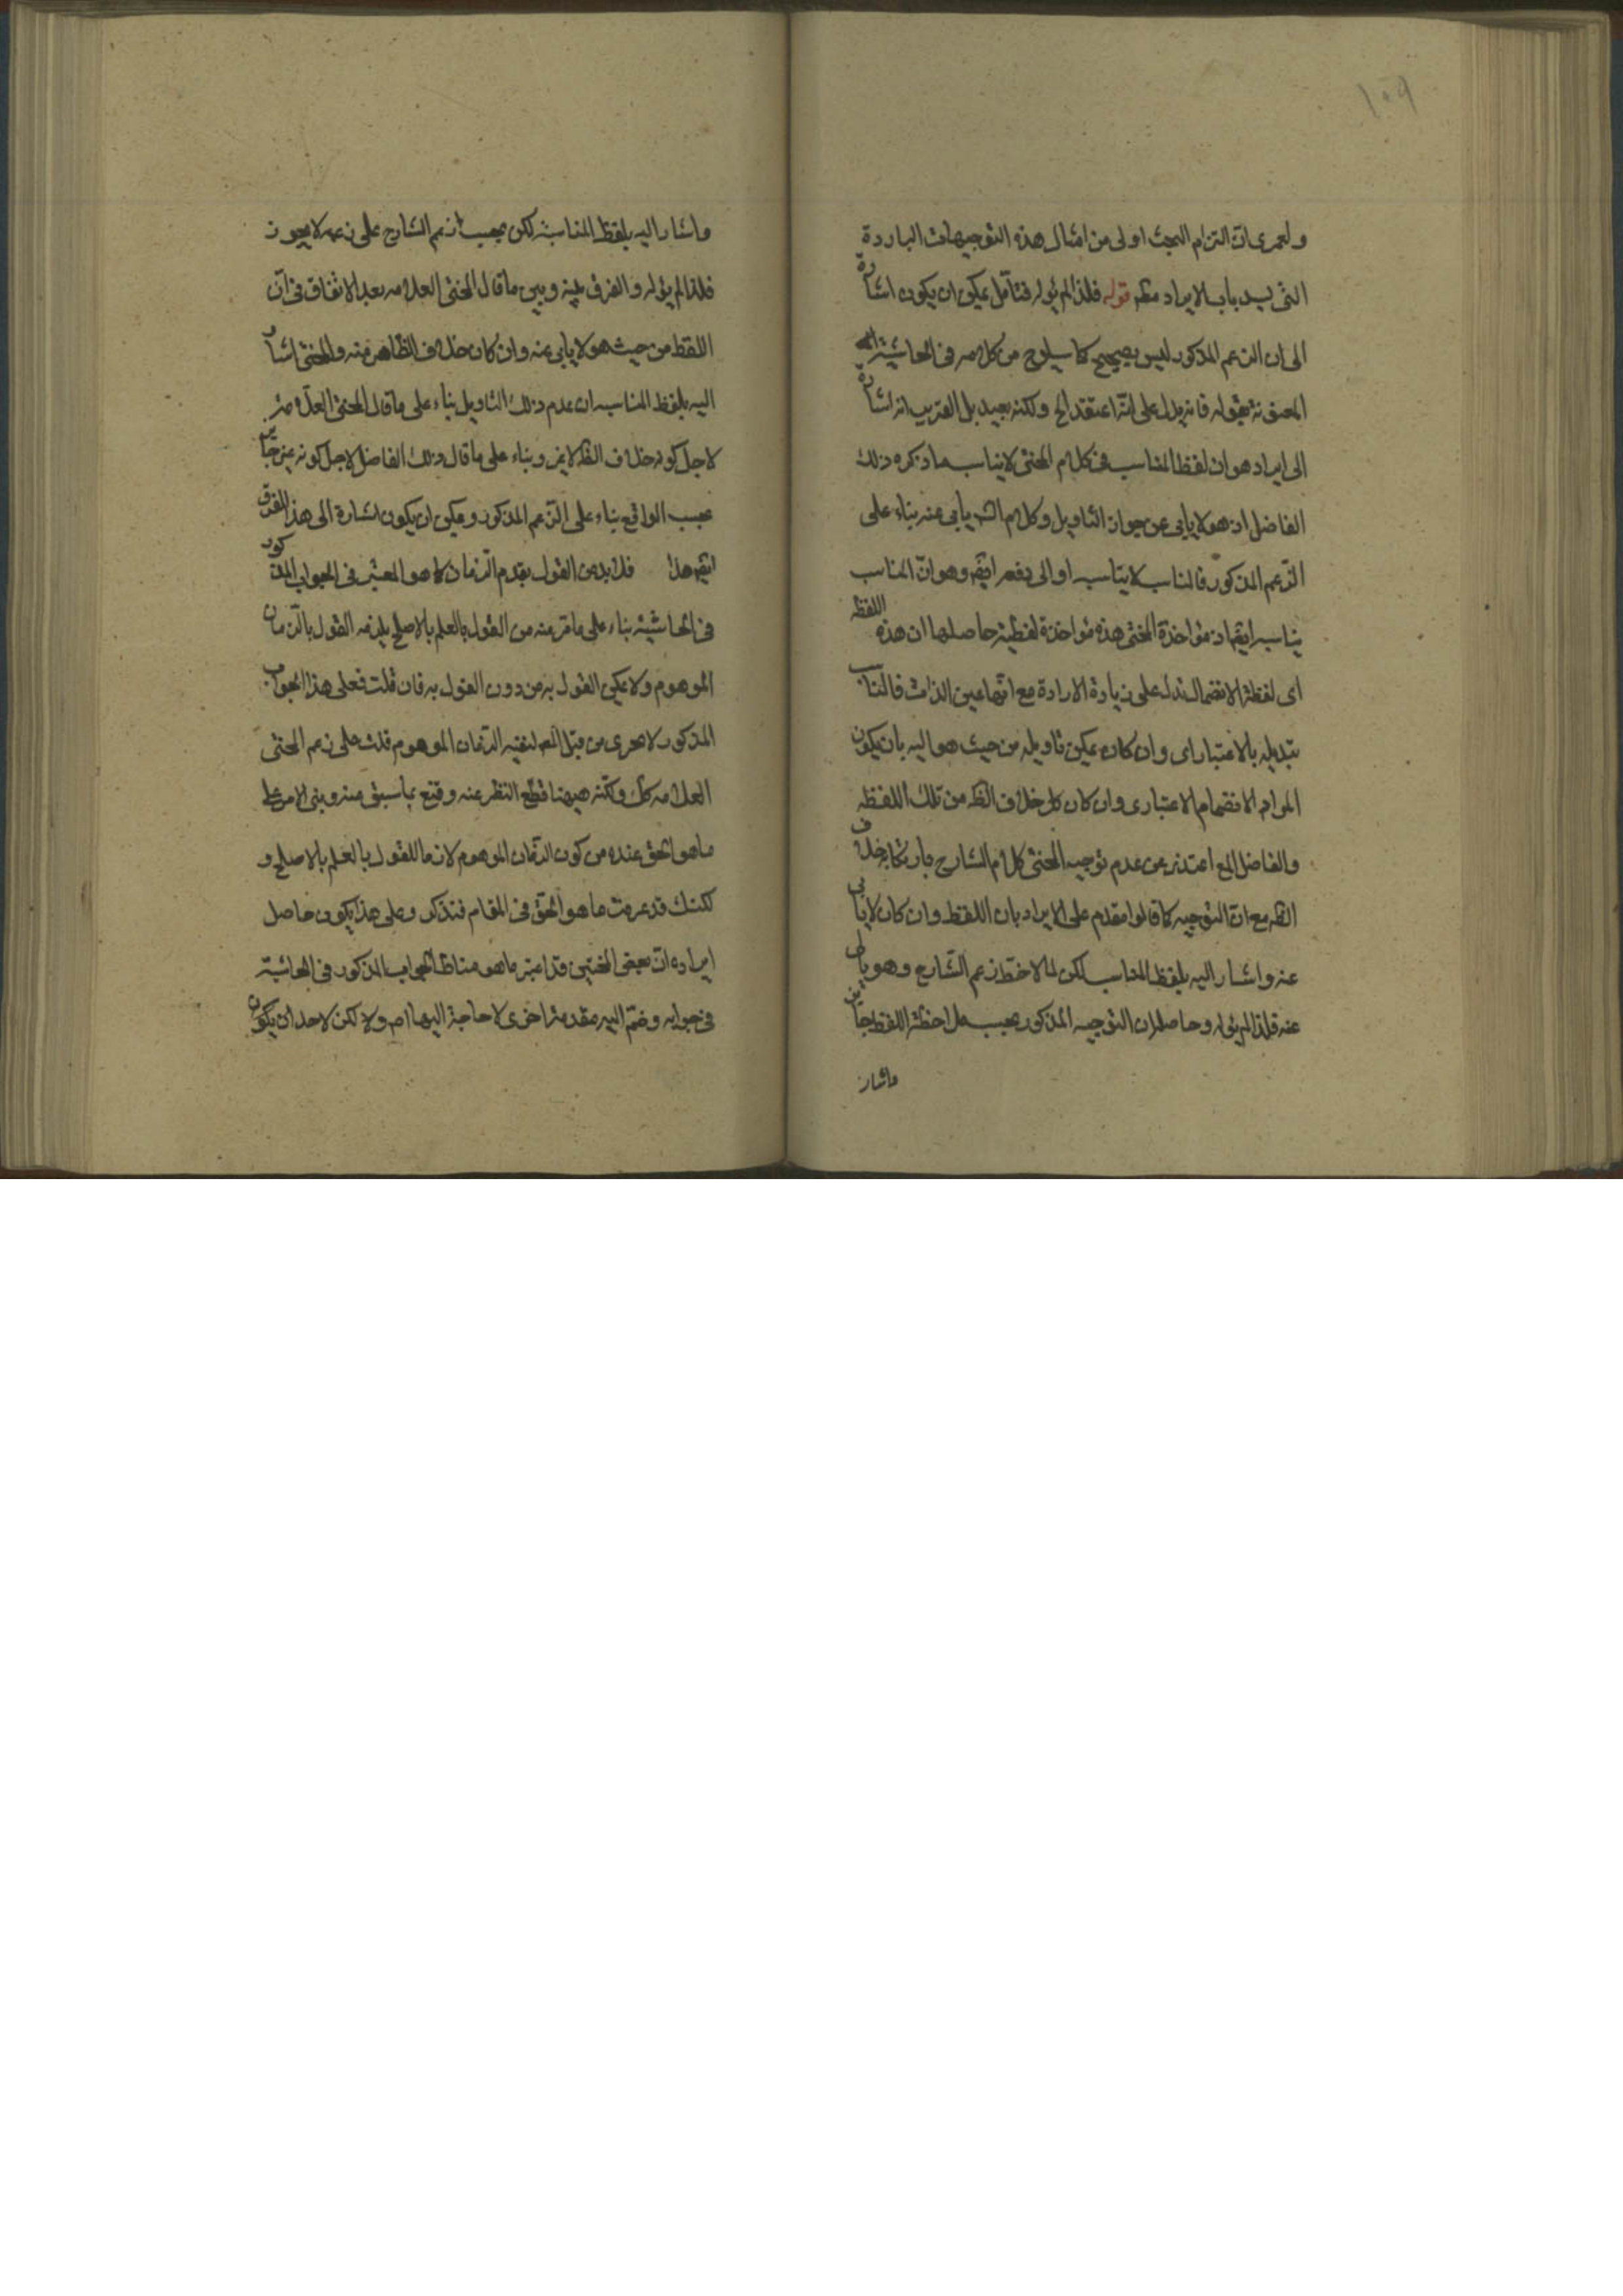 ١٠٩
ولعمرى ان التزام البحث اولى من امثال هذه التوجيهات الباردة
التى يسد باب الايراد مطم قوله فلذا لم يؤله فتأمل يمكن ان يكون اشارة
الى ان الزعم المذكور ليس بصحيح كما سيلوح من كلامه فى الحاشية
المعنونة بقوله فانه يدل على انه اعتقد الخ ولكنه بعيد بل القريب انه اشارة
الى ايراد هو ان لفظ المناسب فى كلام المحشى لا يناسب ما ذكره ذلك
الفاضل اذ هو لا يابى عن جواز التاويل وكلام الش يابى عنه بناء على
الزعم المذكور فالمناسب لا يناسبه او الى دفعه ايضم وهو ان المناسب
يناسبه ايضم اذ مؤاخذة المحشى هذه مؤاخذة لفظية حاصلها ان هذه اللفظه
اى لفظة الانضمال تدل على زيادة الارادة مع انها عين الذات فالمناسب
تبديله بالاعتبار اى وان كان يمكن تاويله من حيث هو اليه بان يكون
المراد الانضمام الاعتبارى وان كان كل خلاف الظه من تلك اللفظه
والفاضل المع اعتذر عن عدم توجيه المحشى كلام الشارح بارتكابه خلاف
الظه مع ان التوجيه كما قالوا مقدم على الايراد بان اللفظ وان كان لا يابى
عنه واشار اليه بلفظ المناسب لكن لما لاحظ زعم الشارح وهو يابى
عنه فلذا لم يؤله وحاصله ان التوجيه المذكور بحسب ملاحظة اللفظ جايز
واشار
واشار اليه بلفظ المناسبة لكن بحسب زعم الشارح على زعمه لا يجوز
فلذا لم يؤله والفرق بينه وبين ما قال المحشى العلامه بعد الاتفاق فى ان
اللفظ من حيث هو لا يابى عنه وان كان خلاف الظاهر منه والمحشى اشار
اليه بلفظ المناسب ان عدم ذلك التاويل بناء على ما قال المحشى العلامة
لاجل كونه خلاف الظه لا غير وبناء على ما قال ذلك الفاضل لاجل كونه غير جايز
بحسب الواقع بناء على الزعم المذكور ويمكن ان يكون اشارة الى هذا الفرق
ايضم هذا فلا بد من القول بقدم الزمان كما هو المعتبر فى الجواب المذكور
فى الحاشية بناء على ما مر منه من القول بالعلم بالاصلح يلزمه القول بالزمان
الموهوم ولا يمكن القول به من دون القول به فان قلت فعلى هذا الجواب
المذكور لا يجرى من قبل المع لنفيه الزمان الموهوم قلت على زعم المحشى
العلامه كك ولكنه ههنا قطع النظر عنه وقنع بما سبق منه وبنى الامر على
ما هو الحق عنده من كون الزمان الموهوم لازما للقول بالعلم بالاصلح و
لكنك قد عرفت ما هو الحق فى المقام فتذكر وعلى هذا يكون حاصل
ايراده ان بعض المحشين قد اعتبر ما هو مناط الجواب المذكور فى الحاشية
فى جوابه وضم اليه مقدمة اخرى لا حاجة اليها اصم ولا لكن لاحد ان يكون